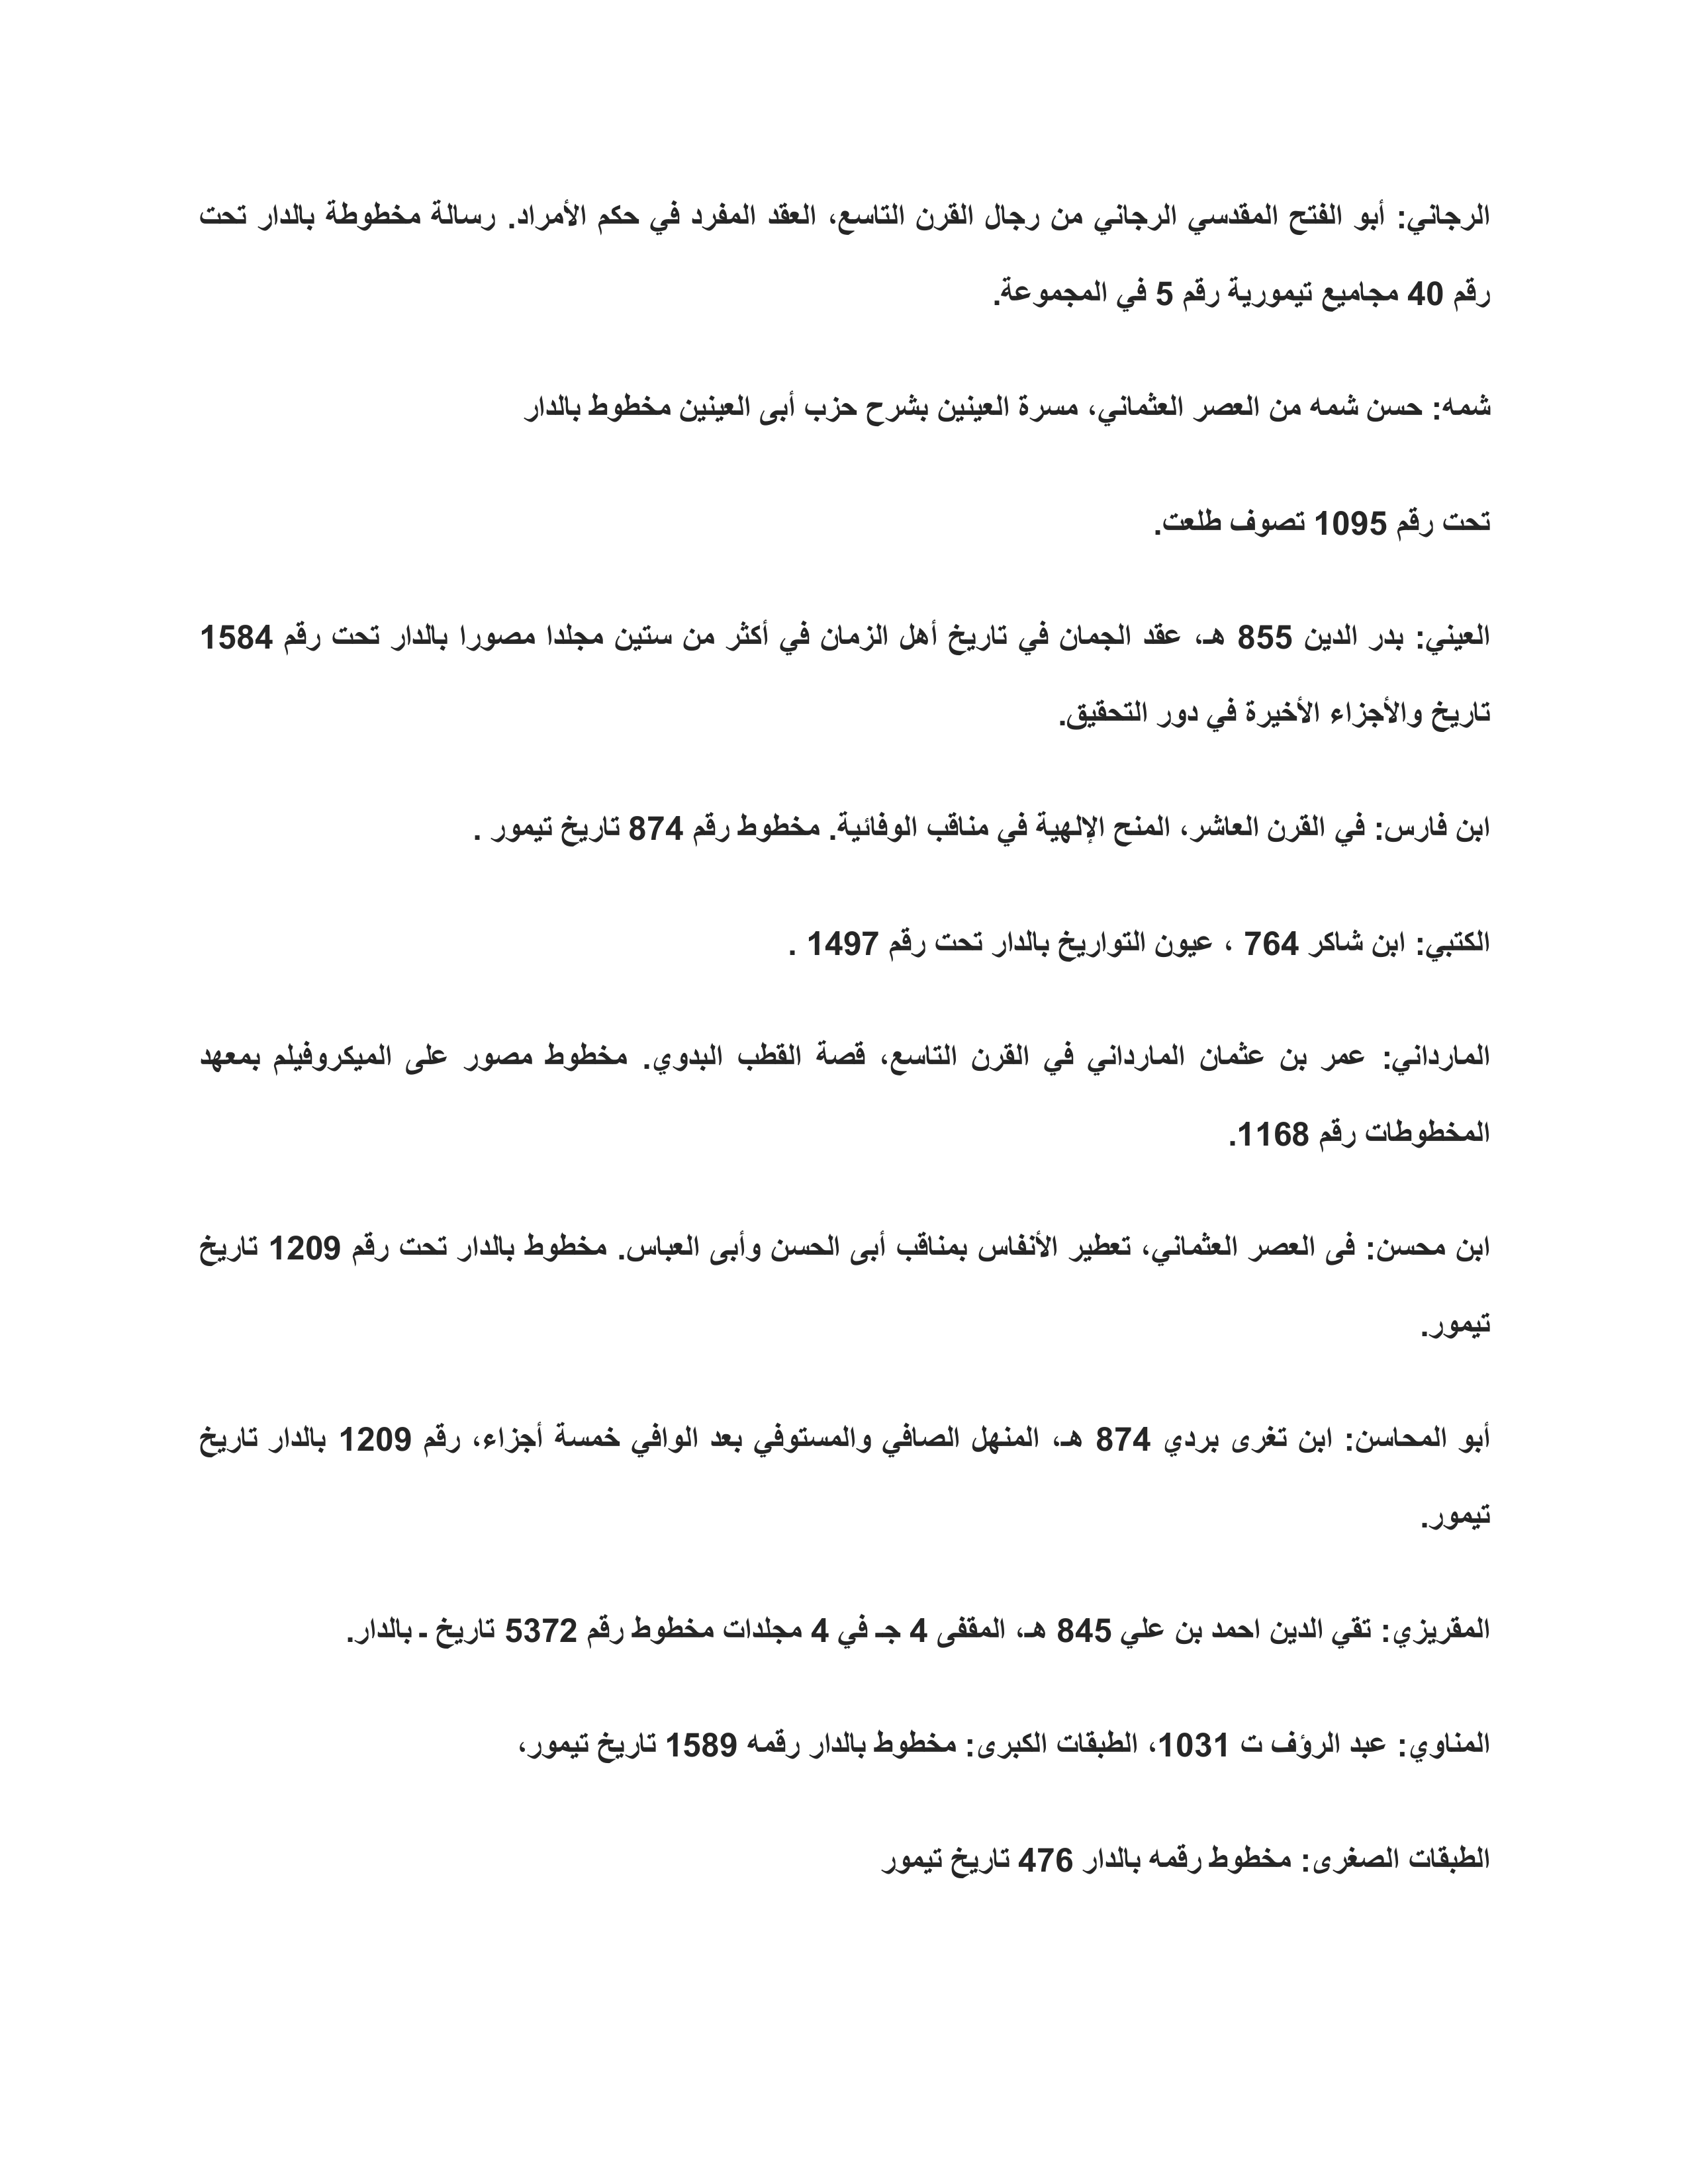 الرجاني: أبو الفتح المقدسي الرجاني من رجال القرن التاسع، العقد المفرد في حكم الأمراد. رسالة مخطوطة بالدار تحت
رقم 40 مجاميع تيمورية رقم 5 في المجموعة.
شمه: حسن شمه من العصر العثماني، مسرة العينين بشرح حزب أبى العينين مخطوط بالدار
تحت رقم 1095 تصوف طلعت.
العيني: بدر الدين 855 هـ، عقد الجمان في تاريخ أهل الزمان في أكثر من ستين مجلدا مصورا بالدار تحت رقم 1584
تاريخ والأجزاء الأخيرة في دور التحقيق.
ابن فارس: في القرن العاشر، المنح الإلهية في مناقب الوفائية. مخطوط رقم 874 تاريخ تيمور .
الكتبي: ابن شاكر 764 ، عيون التواريخ بالدار تحت رقم 1497 .
المارداني: عمر بن عثمان المارداني في القرن التاسع، قصة القطب البدوي. مخطوط مصور على الميكروفيلم بمعهد
المخطوطات رقم 1168.
ابن محسن: فى العصر العثماني، تعطير الأنفاس بمناقب أبى الحسن وأبى العباس. مخطوط بالدار تحت رقم 1209 تاريخ
تيمور.
أبو المحاسن: ابن تغرى بردي 874 هـ، المنهل الصافي والمستوفي بعد الوافي خمسة أجزاء، رقم 1209 بالدار تاريخ
تيمور.
المقريزي: تقي الدين احمد بن علي 845 هـ، المقفى 4 جـ في 4 مجلدات مخطوط رقم 5372 تاريخ ـ بالدار.
المناوي: عبد الرؤف ت 1031، الطبقات الكبرى: مخطوط بالدار رقمه 1589 تاريخ تيمور،
الطبقات الصغرى: مخطوط رقمه بالدار 476 تاريخ تيمور